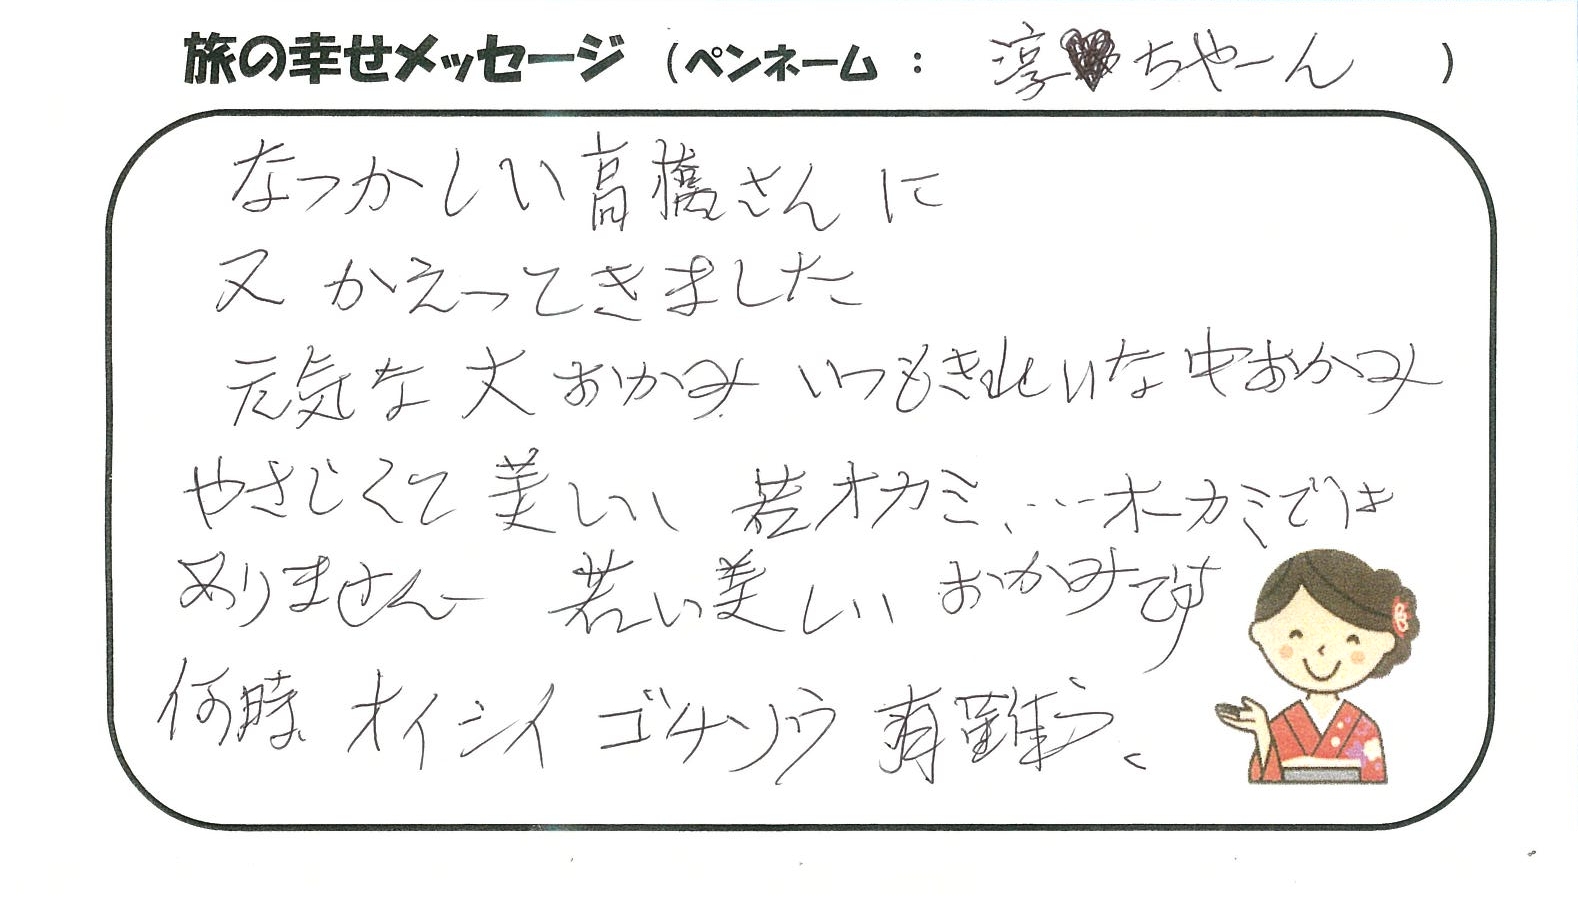 旅の幸せメッセージ（ペンネーム： 淳♥ちゃーん ）
なつかしい高橋さんに
又かえってきました
元気な大おかみ いつもきれいな中おかみ
やさしくて美しい 若オカミ、…オーカミでは
ありません 若い美しい おかみです
何時、オイシイ ゴチソウ 有難う、